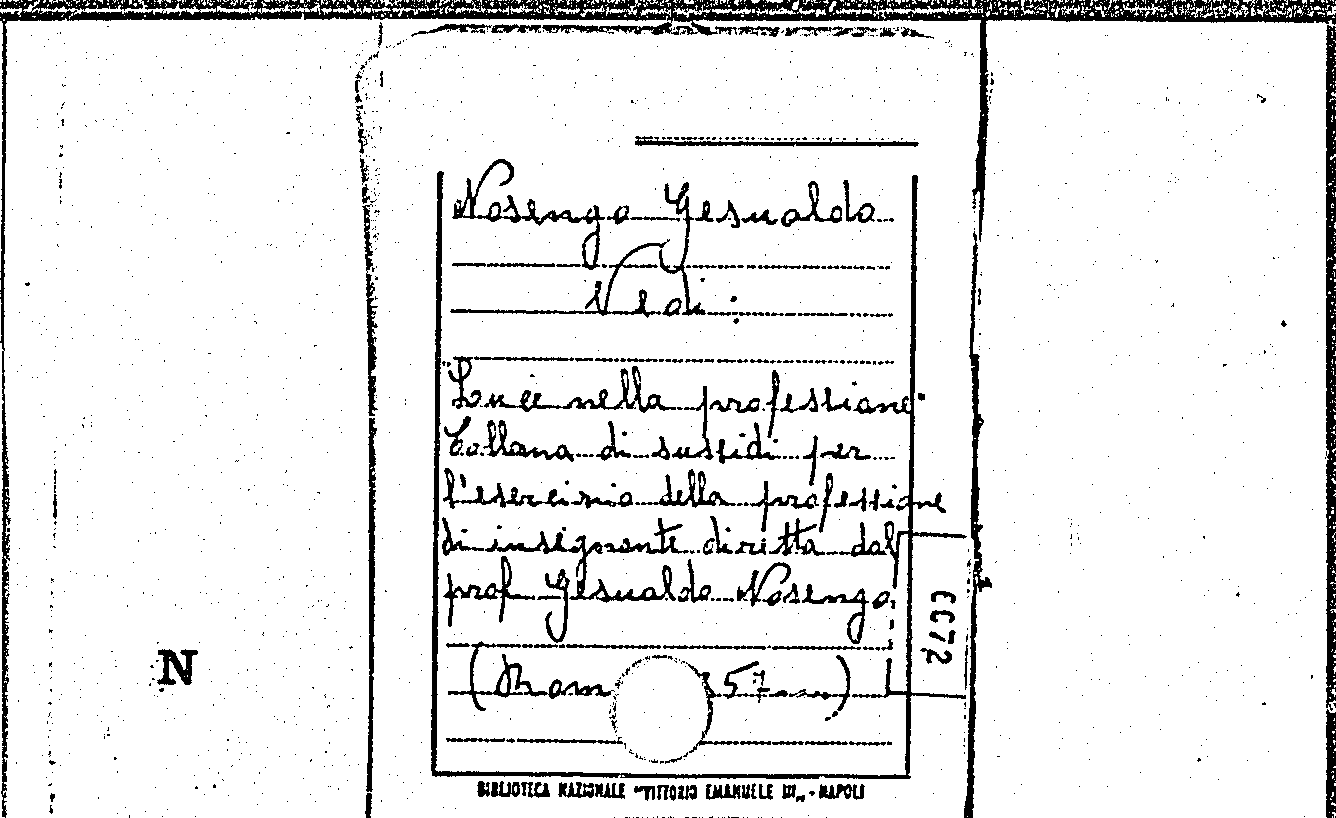 Nosengo Gesualdo
Vedi:
Luce nella professione.
Collana di sussidi per
l'esercizio della professione
di insegnante diretta dal
prof Gesualdo Nosengo
57
CC72
N
BIBLIOTECA NAZIONALE "VITTORIO EMANUELE III" - NAPOLI